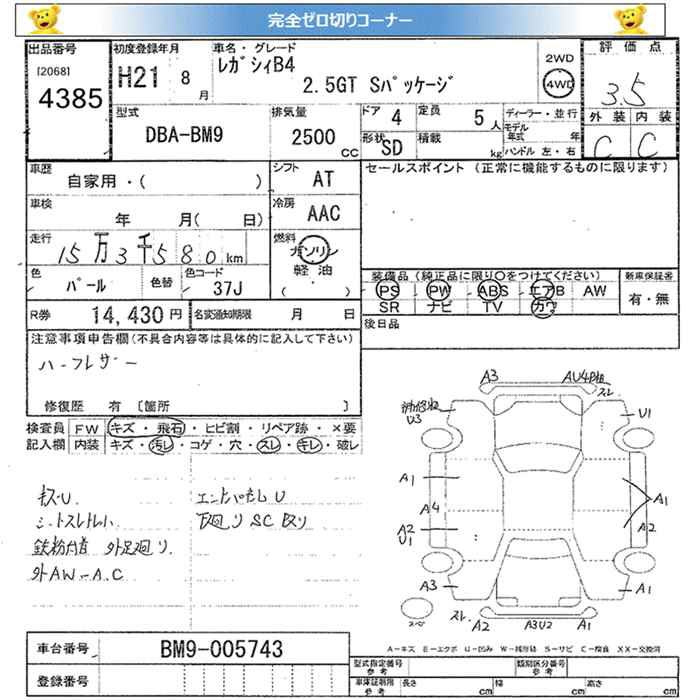 完全ゼロ切りコーナー
出品番号 [2068] 4385
初度登録年月 H21 8月
車名・グレード レガシィB4
2.5GT Sパッケージ
2WD 4WD
評価点 3.5
外装 内装
C C
型式 DBA-BM9
排気量 2500 CC
ドア 4
定員 5人
形状 SD
積載 kg
ディーラー・並行
モデル年式 年
ハンドル 左・右
車歴 自家用・( )
シフト AT
セールスポイント (正常に機能するものに限ります)
車検 年 月( 日)
冷房 AAC
走行 15万3千580km
燃料 ガソリン 軽油 ( )
色 パール 色替
色コード 37J
装備品 (純正品に限り○をつけてください)
PS PW ABS エアB AW
SR ナビ TV カワ
新車保証書 有・無
R券 14,430円
名変通知期限 月 日
後日品
注意事項申告欄(不具合内容等は具体的に記入して下さい)
ハーフレザー
修復歴 有 [箇所 ]
検査員 FW キズ・飛石・ヒビ割・リペア跡・×要
記入欄 内装 キズ・汚レ・コゲ・穴・スレ・キレ・破レ
キズU.
シートスレ
鉄粉付着 外足廻り.
外AW-A.C
エンドパネルU
下廻りSCアリ
A3
スレ
U3
U1
A1
A4
A1
A2
U1
A2
A3
A1
スペ
スレ
A2
A3U2
A1
A-キズ E-エクボ U-凹み W-補修跡 S-サビ C-腐食 XX-交換済
車台番号 BM9-005743
登録番号
型式指定番号 参考
類別区分番号 参考
車庫証明用 参考 長さ cm 幅 cm 高さ cm